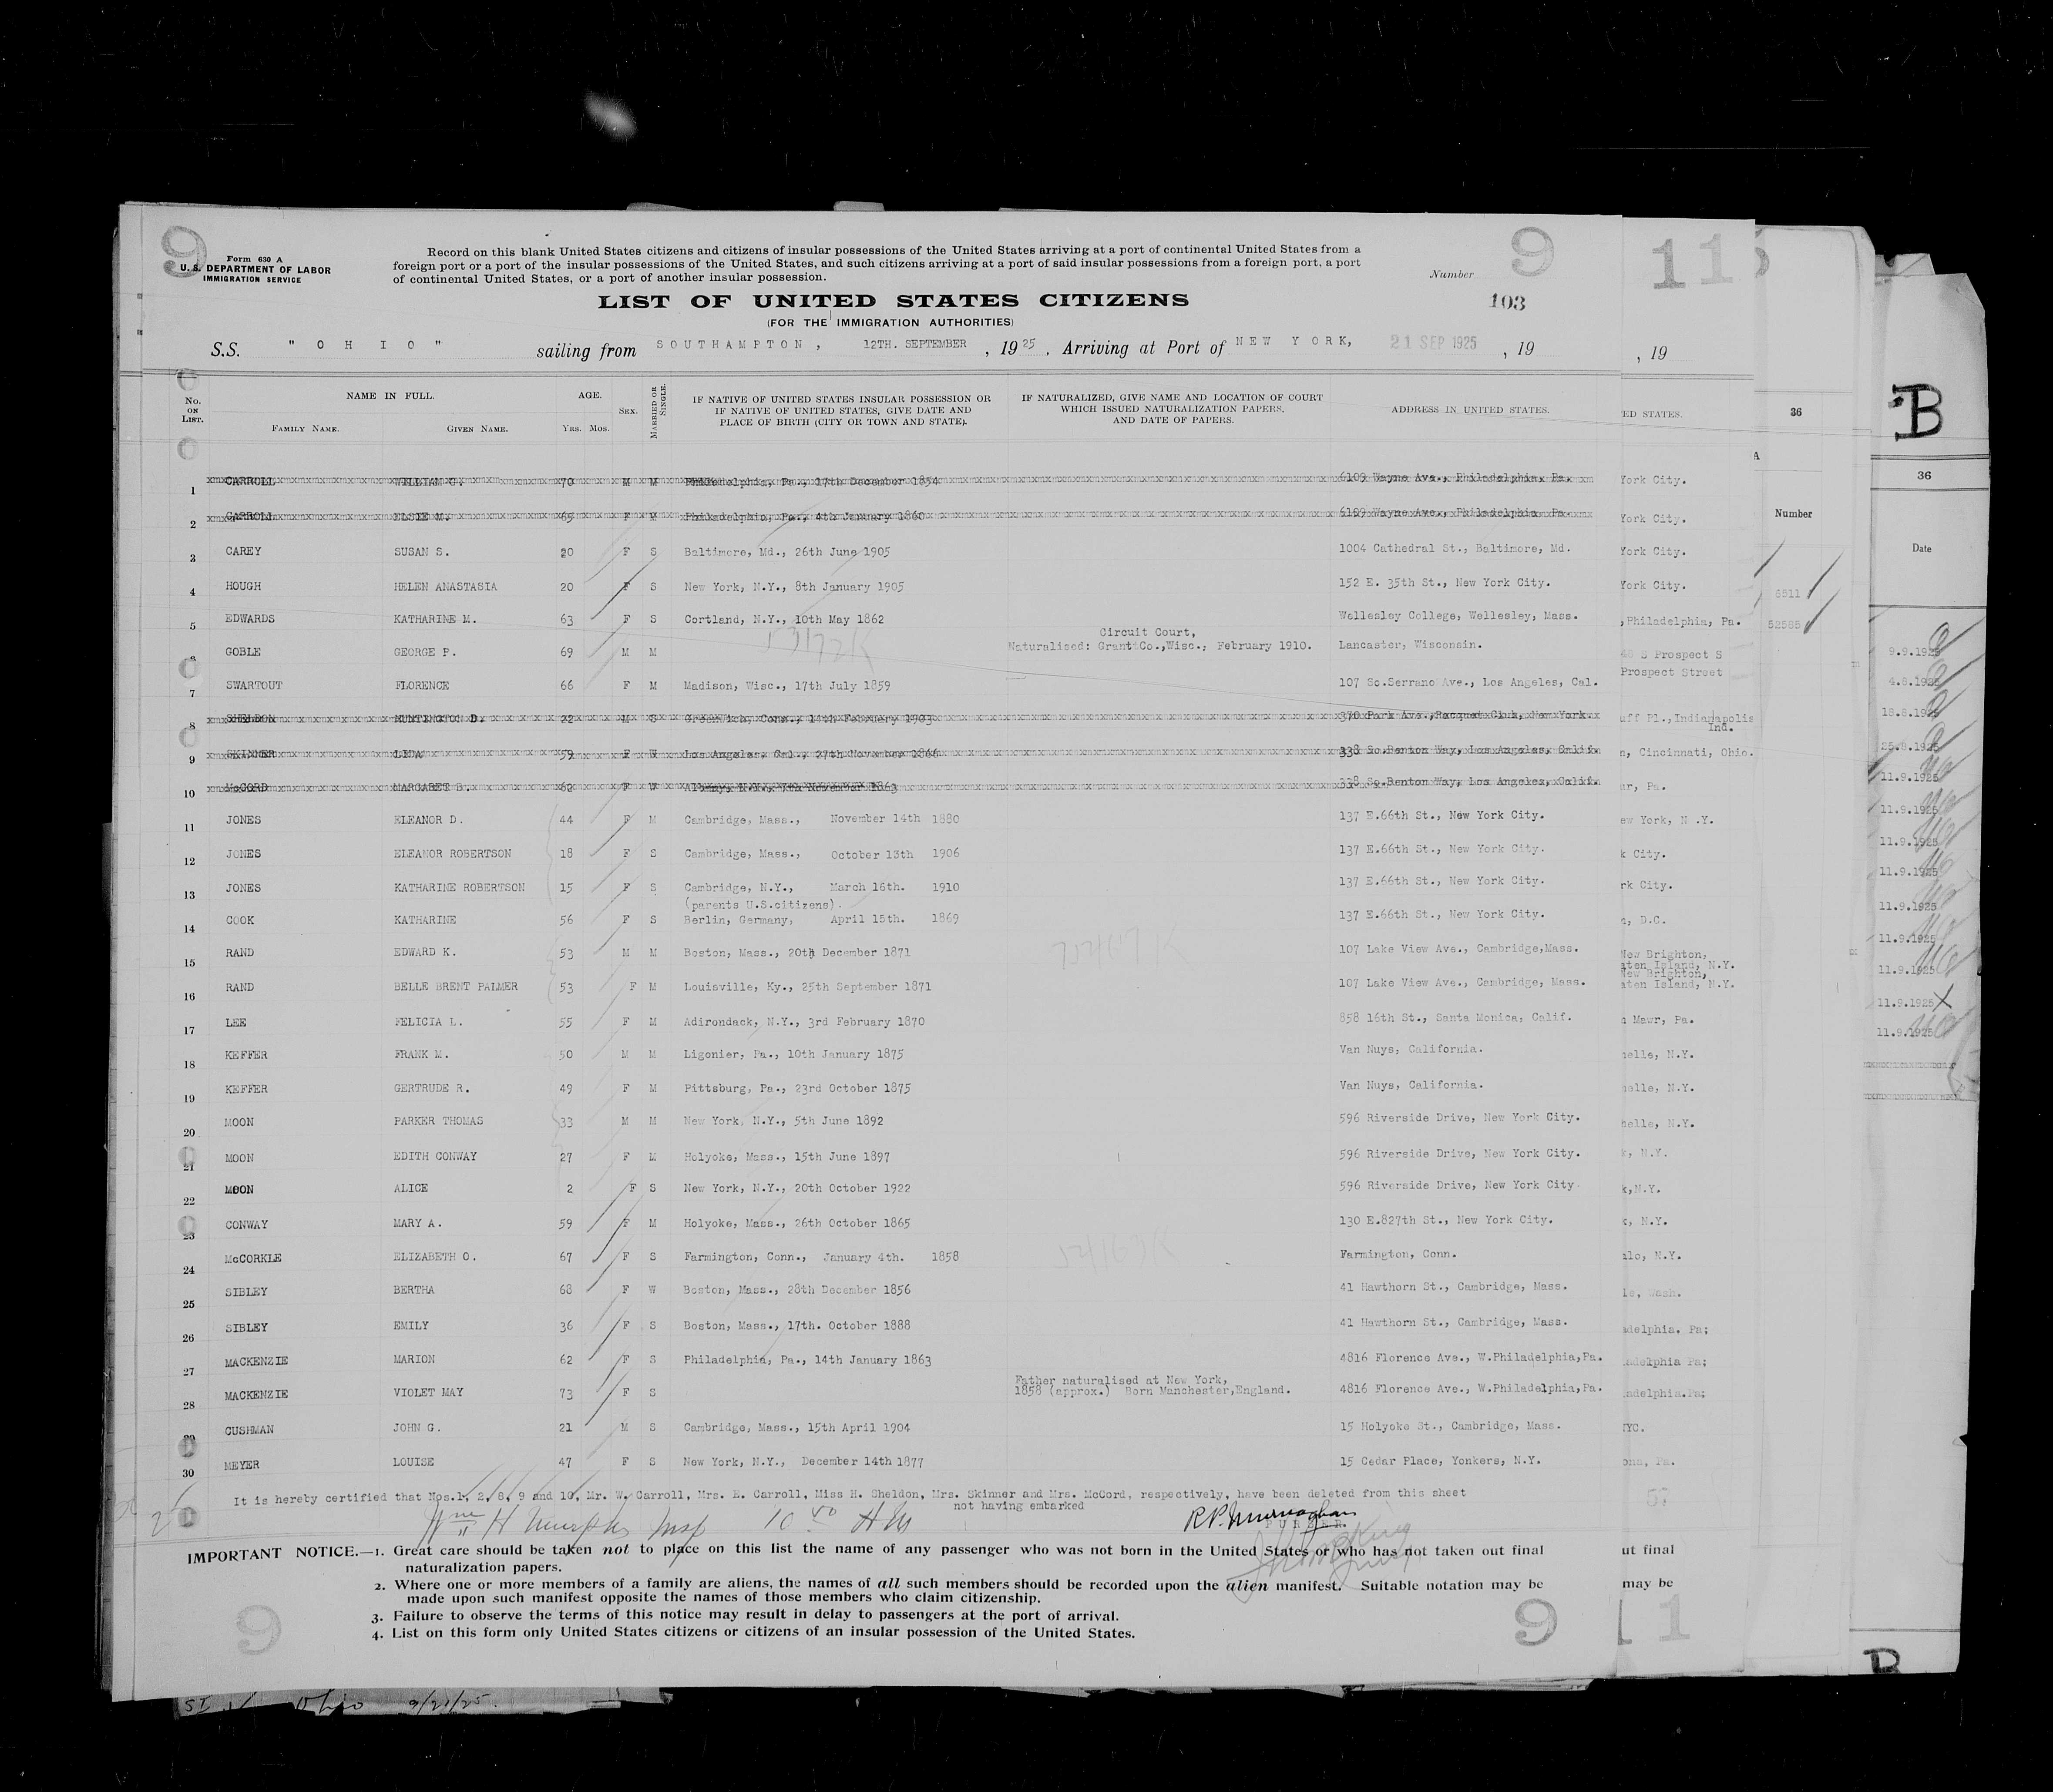 9
9
Form 630 A
U. S. DEPARTMENT OF LABOR
IMMIGRATION SERVICE
Record on this blank United States citizens and citizens of insular possessions of the United States arriving at a port of continental United States from a
foreign port or a port of the insular possessions of the United States, and such citizens arriving at a port of said insular possessions from a foreign port, a port
of continental United States, or a port of another insular possession.
Number
103
LIST OF UNITED STATES CITIZENS
(FOR THE IMMIGRATION AUTHORITIES)
S.S. "OHIO" sailing from SOUTHAMPTON, 12TH. SEPTEMBER, 1925, Arriving at Port of NEW YORK, 21 SEP 1925, 19
No. ON LIST. NAME IN FULL. AGE. SEX. MARRIED OR SINGLE. IF NATIVE OF UNITED STATES INSULAR POSSESSION OR IF NATIVE OF UNITED STATES, GIVE DATE AND PLACE OF BIRTH (CITY OR TOWN AND STATE). IF NATURALIZED, GIVE NAME AND LOCATION OF COURT WHICH ISSUED NATURALIZATION PAPERS, AND DATE OF PAPERS. ADDRESS IN UNITED STATES.
FAMILY NAME. GIVEN NAME. Yrs. Mos.
1 CARROLL WILLIAM 70 M M Philadelphia, Pa., 17th December 1854 6109 Wayne Ave., Philadelphia, Pa.
2 CARROLL ELSIE M. 65 F M Philadelphia, Pa., 4th January 1860 6109 Wayne Ave., Philadelphia, Pa.
3 CAREY SUSAN S. 20 F S Baltimore, Md., 26th June 1905 1004 Cathedral St., Baltimore, Md.
4 HOUGH HELEN ANASTASIA 20 F S New York, N.Y., 8th January 1905 152 E. 35th St., New York City.
5 EDWARDS KATHARINE M. 63 F S Cortland, N.Y., 10th May 1862 Wellesley College, Wellesley, Mass.
6 GOBLE GEORGE P. 69 M M Circuit Court, Naturalised: Grant Co.,Wisc., February 1910. Lancaster, Wisconsin.
7 SWARTOUT FLORENCE 66 F M Madison, Wisc., 17th July 1859 107 So.Serrano Ave., Los Angeles, Cal.
8 SHELDON HUNTINGTON D. 22 M S Greenwich, Conn., 14th February 1903 370 Park Ave.,Racquet Club, New York.
9 SKINNER LIDA 59 F W Los Angeles, Cal., 27th November 1866 338 So.Benton Way, Los Angeles, Calif.
10 McCORD MARGARET B. 62 F W Albany, N.Y., 7th November 1863 338 So.Benton Way, Los Angeles, Calif.
11 JONES ELEANOR D. 44 F M Cambridge, Mass., November 14th 1880 137 E.66th St., New York City.
12 JONES ELEANOR ROBERTSON 18 F S Cambridge, Mass., October 13th 1906 137 E.66th St., New York City.
13 JONES KATHARINE ROBERTSON 15 F S Cambridge, N.Y., March 16th. 1910 137 E.66th St., New York City.
(parents U.S.citizens).
14 COOK KATHARINE 56 F S Berlin, Germany, April 15th. 1869 137 E.66th St., New York City.
15 RAND EDWARD K. 53 M M Boston, Mass., 20th December 1871 107 Lake View Ave., Cambridge,Mass.
16 RAND BELLE BRENT PALMER 53 F M Louisville, Ky., 25th September 1871 107 Lake View Ave., Cambridge, Mass.
17 LEE FELICIA L. 55 F M Adirondack, N.Y., 3rd February 1870 858 16th St., Santa Monica, Calif.
18 KEFFER FRANK M. 50 M M Ligonier, Pa., 10th January 1875 Van Nuys, California.
19 KEFFER GERTRUDE R. 49 F M Pittsburg, Pa., 23rd October 1875 Van Nuys, California.
20 MOON PARKER THOMAS 33 M M New York, N.Y., 5th June 1892 596 Riverside Drive, New York City.
21 MOON EDITH CONWAY 27 F M Holyoke, Mass., 15th June 1897 596 Riverside Drive, New York City.
22 MOON ALICE 2 F S New York, N.Y., 20th October 1922 596 Riverside Drive, New York City.
23 CONWAY MARY A. 59 F M Holyoke, Mass., 26th October 1865 130 E.827th St., New York City.
24 McCORKLE ELIZABETH O. 67 F S Farmington, Conn., January 4th. 1858 Farmington, Conn.
25 SIBLEY BERTHA 68 F W Boston, Mass., 28th December 1856 41 Hawthorn St., Cambridge, Mass.
26 SIBLEY EMILY 36 F S Boston, Mass., 17th. October 1888 41 Hawthorn St., Cambridge, Mass.
27 MACKENZIE MARION 62 F S Philadelphia, Pa., 14th January 1863 4816 Florence Ave., W.Philadelphia,Pa.
28 MACKENZIE VIOLET MAY 73 F S Father naturalised at New York, 1858 (approx.) Born Manchester,England. 4816 Florence Ave., W.Philadelphia,Pa.
29 CUSHMAN JOHN G. 21 M S Cambridge, Mass., 15th April 1904 15 Holyoke St., Cambridge, Mass.
30 MEYER LOUISE 47 F S New York, N.Y., December 14th 1877 15 Cedar Place, Yonkers, N.Y.
It is hereby certified that Nos.1, 2, 8, 9 and 10, Mr. W. Carroll, Mrs. E. Carroll, Miss H. Sheldon, Mrs. Skinner and Mrs. McCord, respectively, have been deleted from this sheet
not having embarked
Wm H Murphy Insp 10 40 AM
PURSER.
IMPORTANT NOTICE.—1. Great care should be taken not to place on this list the name of any passenger who was not born in the United States or who has not taken out final
naturalization papers.
2. Where one or more members of a family are aliens, the names of all such members should be recorded upon the alien manifest. Suitable notation may be
made upon such manifest opposite the names of those members who claim citizenship.
3. Failure to observe the terms of this notice may result in delay to passengers at the port of arrival.
4. List on this form only United States citizens or citizens of an insular possession of the United States.
9
9
11
, 19
ED STATES.
York City.
York City.
York City.
York City.
,Philadelphia, Pa.
S Prospect S
Prospect Street
uff Pl.,Indianapolis
Ind.
n, Cincinnati, Ohio.
ur, Pa.
ew York, N.Y.
k City.
rk City.
n, D.C.
New Brighton,
aten Island, N.Y.
New Brighton,
aten Island, N.Y.
n Mawr, Pa.
helle, N.Y.
helle, N.Y.
helle, N.Y.
k, N.Y.
k,N.Y.
k, N.Y.
alo, N.Y.
le, Wash.
adelphia, Pa;
adelphia Pa;
adelphia.Pa;
NYC.
ona, Pa.
57
ut final
may be
1
36
Number
6811
52585
B
36
Date
9.9.1925
4.8.1925
18.8.1925
25.8.1925
11.9.1925
11.9.1925
11.9.1925
11.9.1925
11.9.1925
11.9.1925
11.9.1925
11.9.1925
11.9.1925
B
Ohio 9/21/25.